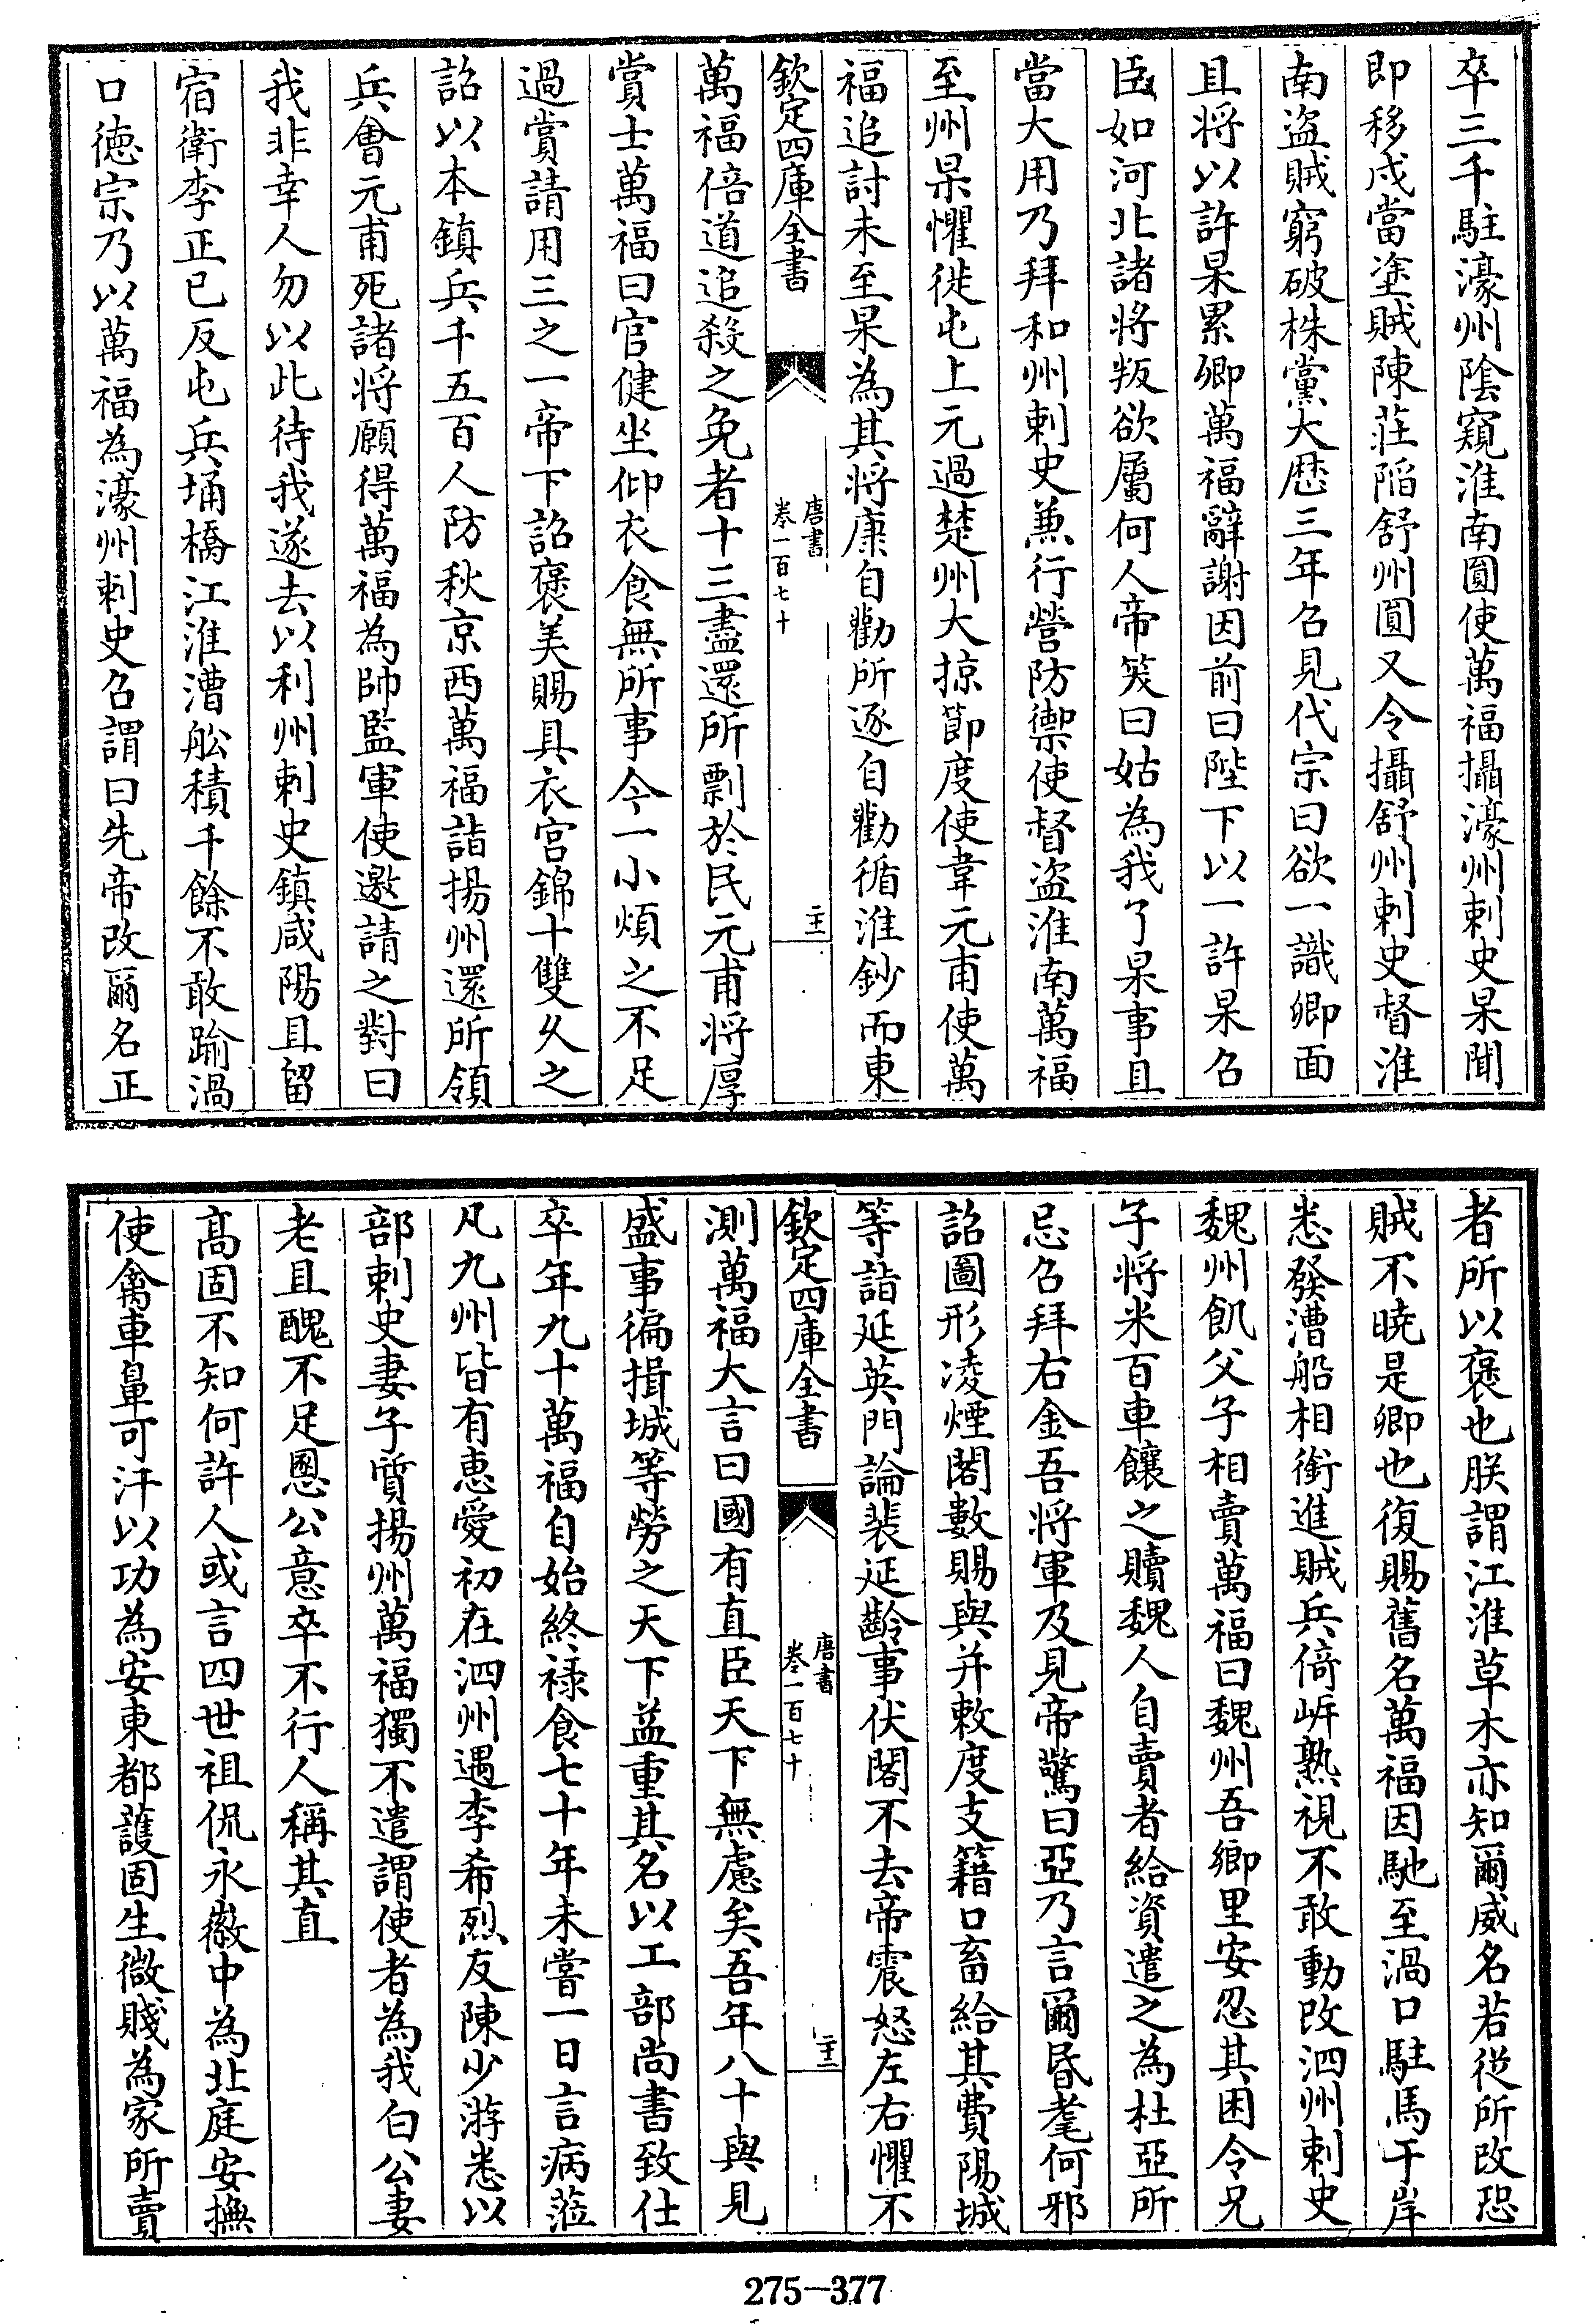 卒三千駐濠州陰窺淮南圓使萬福攝濠州刺史杲聞
即移戍當塗賊陳莊陷舒州圓又令攝舒州刺史督淮
南盜賊窮破株黨大厯三年召見代宗曰欲一識卿面
且將以許杲累卿萬福辭謝因前曰陛下以一許杲召
臣如河北諸將叛欲屬何人帝笑曰姑為我了杲事且
當大用乃拜和州刺史兼行營防禦使督盜淮南萬福
至州杲懼徙屯上元過楚州大掠節度使韋元甫使萬
福追討未至杲為其將康自勸所逐自勸循淮鈔而東
欽定四庫全書
唐書
卷一百七十
二十一
萬福倍道追殺之免者十三盡還所剽於民元甫將厚
賞士萬福曰官健坐仰衣食無所事今一小煩之不足
過賞請用三之一帝下詔褒美賜具衣宮錦十雙乆之
詔以本鎮兵千五百人防秋京西萬福詣揚州還所領
兵會元甫死諸將願得萬福為帥監軍使邀請之對曰
我非幸人勿以此待我遂去以利州刺史鎮咸陽且留
宿衛李正已反屯兵埇橋江淮漕舩積千餘不敢踰渦
口德宗乃以萬福為濠州刺史召謂曰先帝改爾名正
者所以褒也朕謂江淮草木亦知爾威名若從所改恐
賊不曉是卿也復賜舊名萬福因馳至渦口駐馬于岸
悉發漕船相銜進賊兵倚岍熟視不敢動改泗州刺史
魏州飢父子相賣萬福曰魏州吾卿里安忍其困令兄
子將米百車饟之贖魏人自賣者給資遣之為杜亞所
忌召拜右金吾將軍及見帝驚曰亞乃言爾昏耄何邪
詔圖形凌煙閣數賜與并敕度支籍口畜給其費陽城
等詣延英門論裴延齡事伏閤不去帝震怒左右懼不
欽定四庫全書
唐書
卷一百七十
二十二
測萬福大言曰國有直臣天下無慮矣吾年八十與見
盛事徧揖城等勞之天下益重其名以工部尚書致仕
卒年九十萬福自始終祿食七十年未嘗一日言病蒞
凡九州皆有惠愛初在泗州遇李希烈友陳少游悉以
部刺史妻子質揚州萬福獨不遣謂使者為我白公妻
老且醜不足慁公意卒不行人稱其直
髙固不知何許人或言四世祖侃永徽中為北庭安撫
使禽車鼻可汗以功為安東都護固生微賤為家所賣
275—377